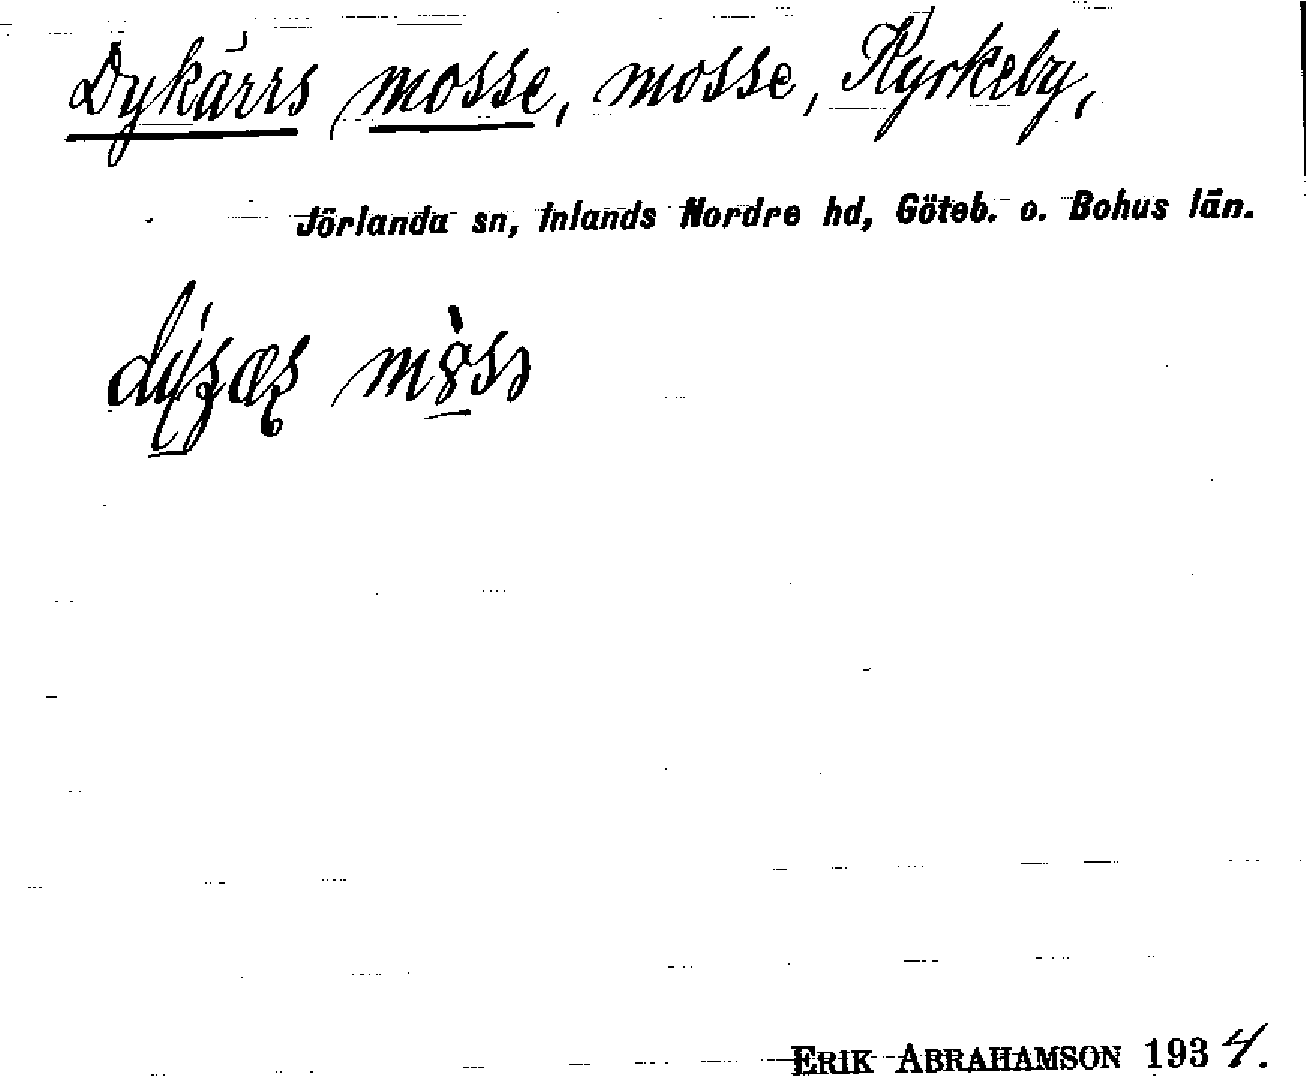 Dykärrs mosse, mosse, Kyrkeby,
Jörlanda sn, Inlands Nordre hd, Göteb. o. Bohus län.
ERIK ABRAHAMSON 1934.